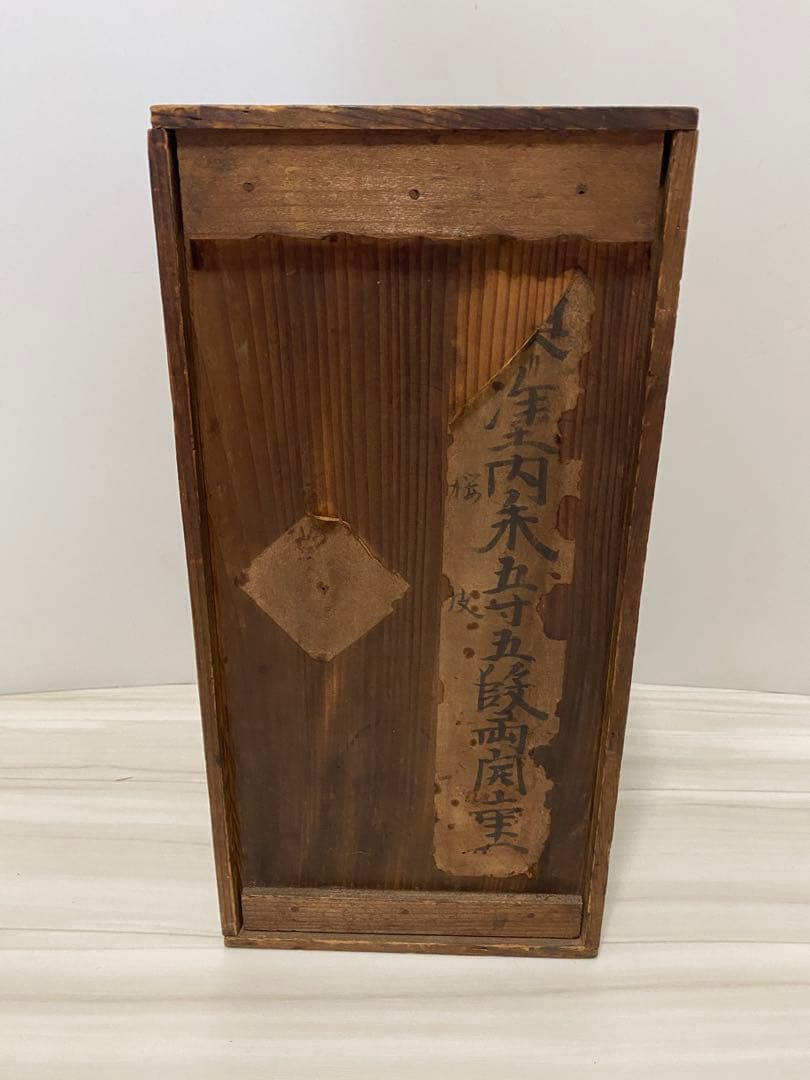 塗内朱五寸五段両開重
桜皮